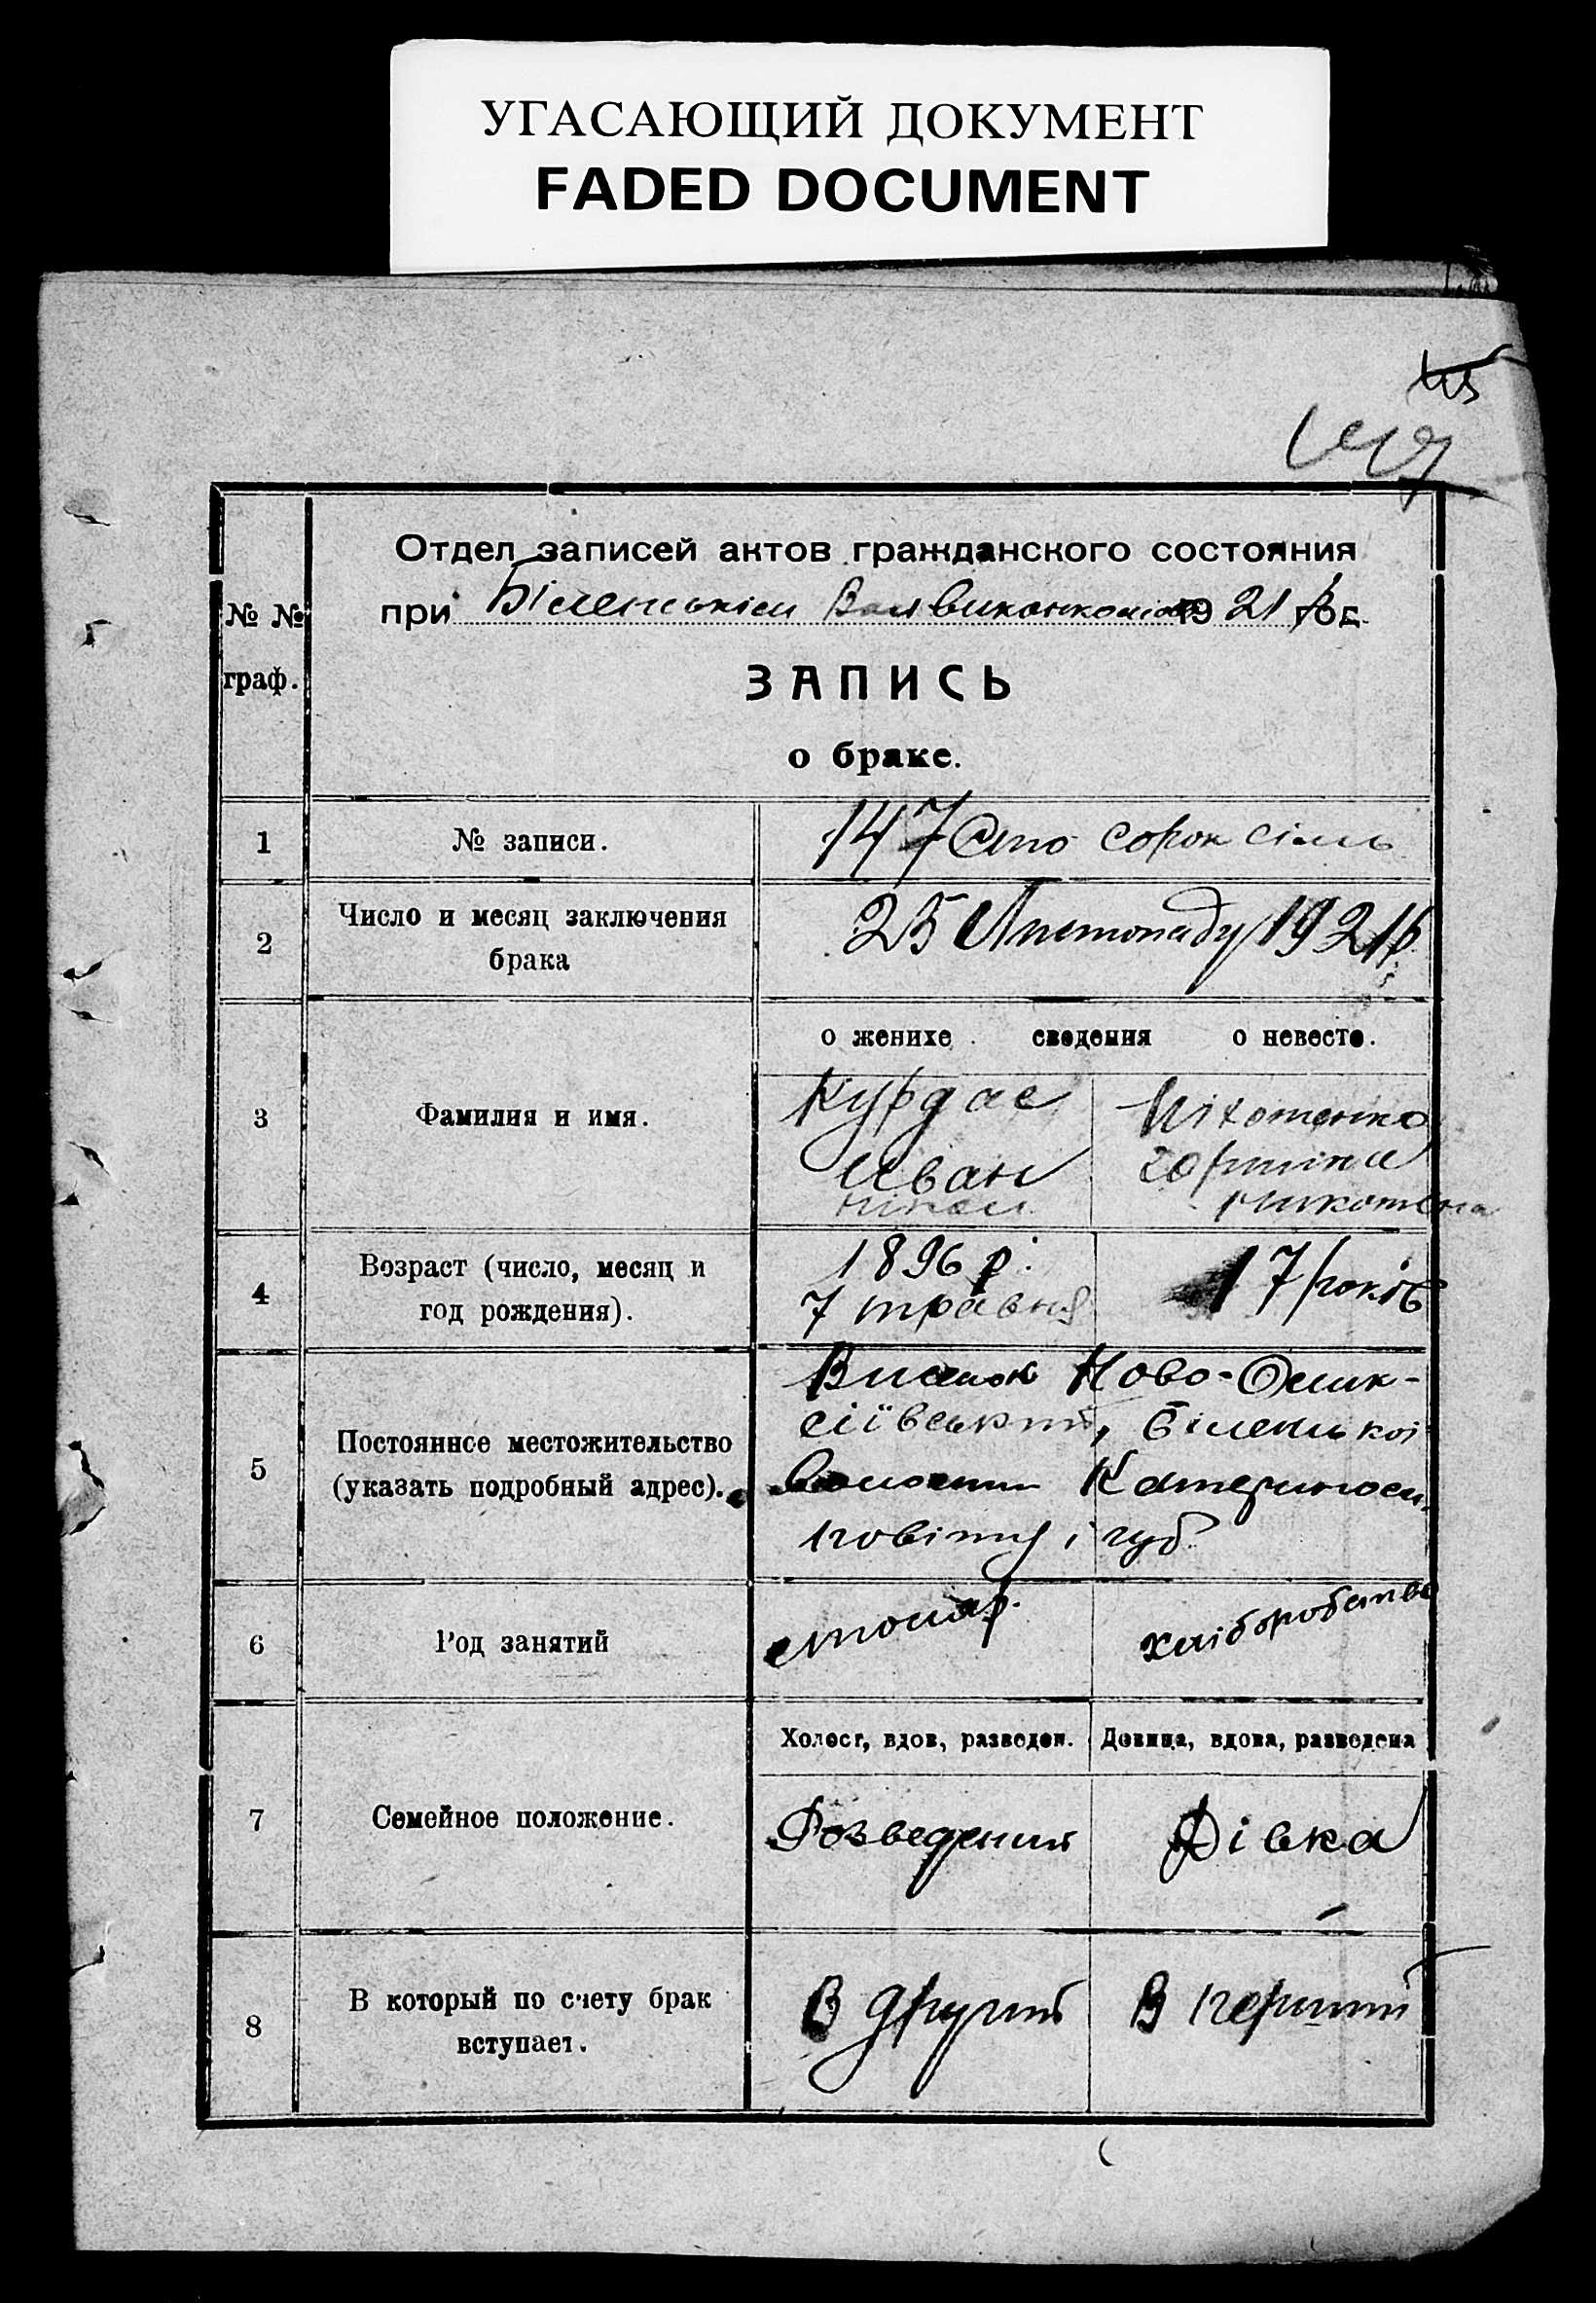 УГАСАЮЩИЙ ДОКУМЕНТ
FADED DOCUMENT
Отдел записей актов гражданского состояния
при Біленькім Волвиконкомі 1921 р год.
№ №
граф.
ЗАПИСЬ
о браке.
1 № записи. 147 Сто сорок сім
2 Число и месяц заключения брака 25 Листопаду 1921 р.
о женихе сведения о невесте.
3 Фамилия и имя.
Курдас
Іван
Піхотенко
4 Возраст (число, месяц и год рождения).
1896 р.
7 травня
17 років
5 Постоянное местожительство (указать подробный адрес).
Виселок Ново-Олик-
сіївський, Біленької
волости Катериносл.
повіту і губ.
6 Род занятий
столяр.
хліборобство
Холост, вдов, разведен. Девица, вдова, разведена
7 Семейное положение.
Розведений
Дівка
8 В который по счету брак вступает.
В другий
В перший